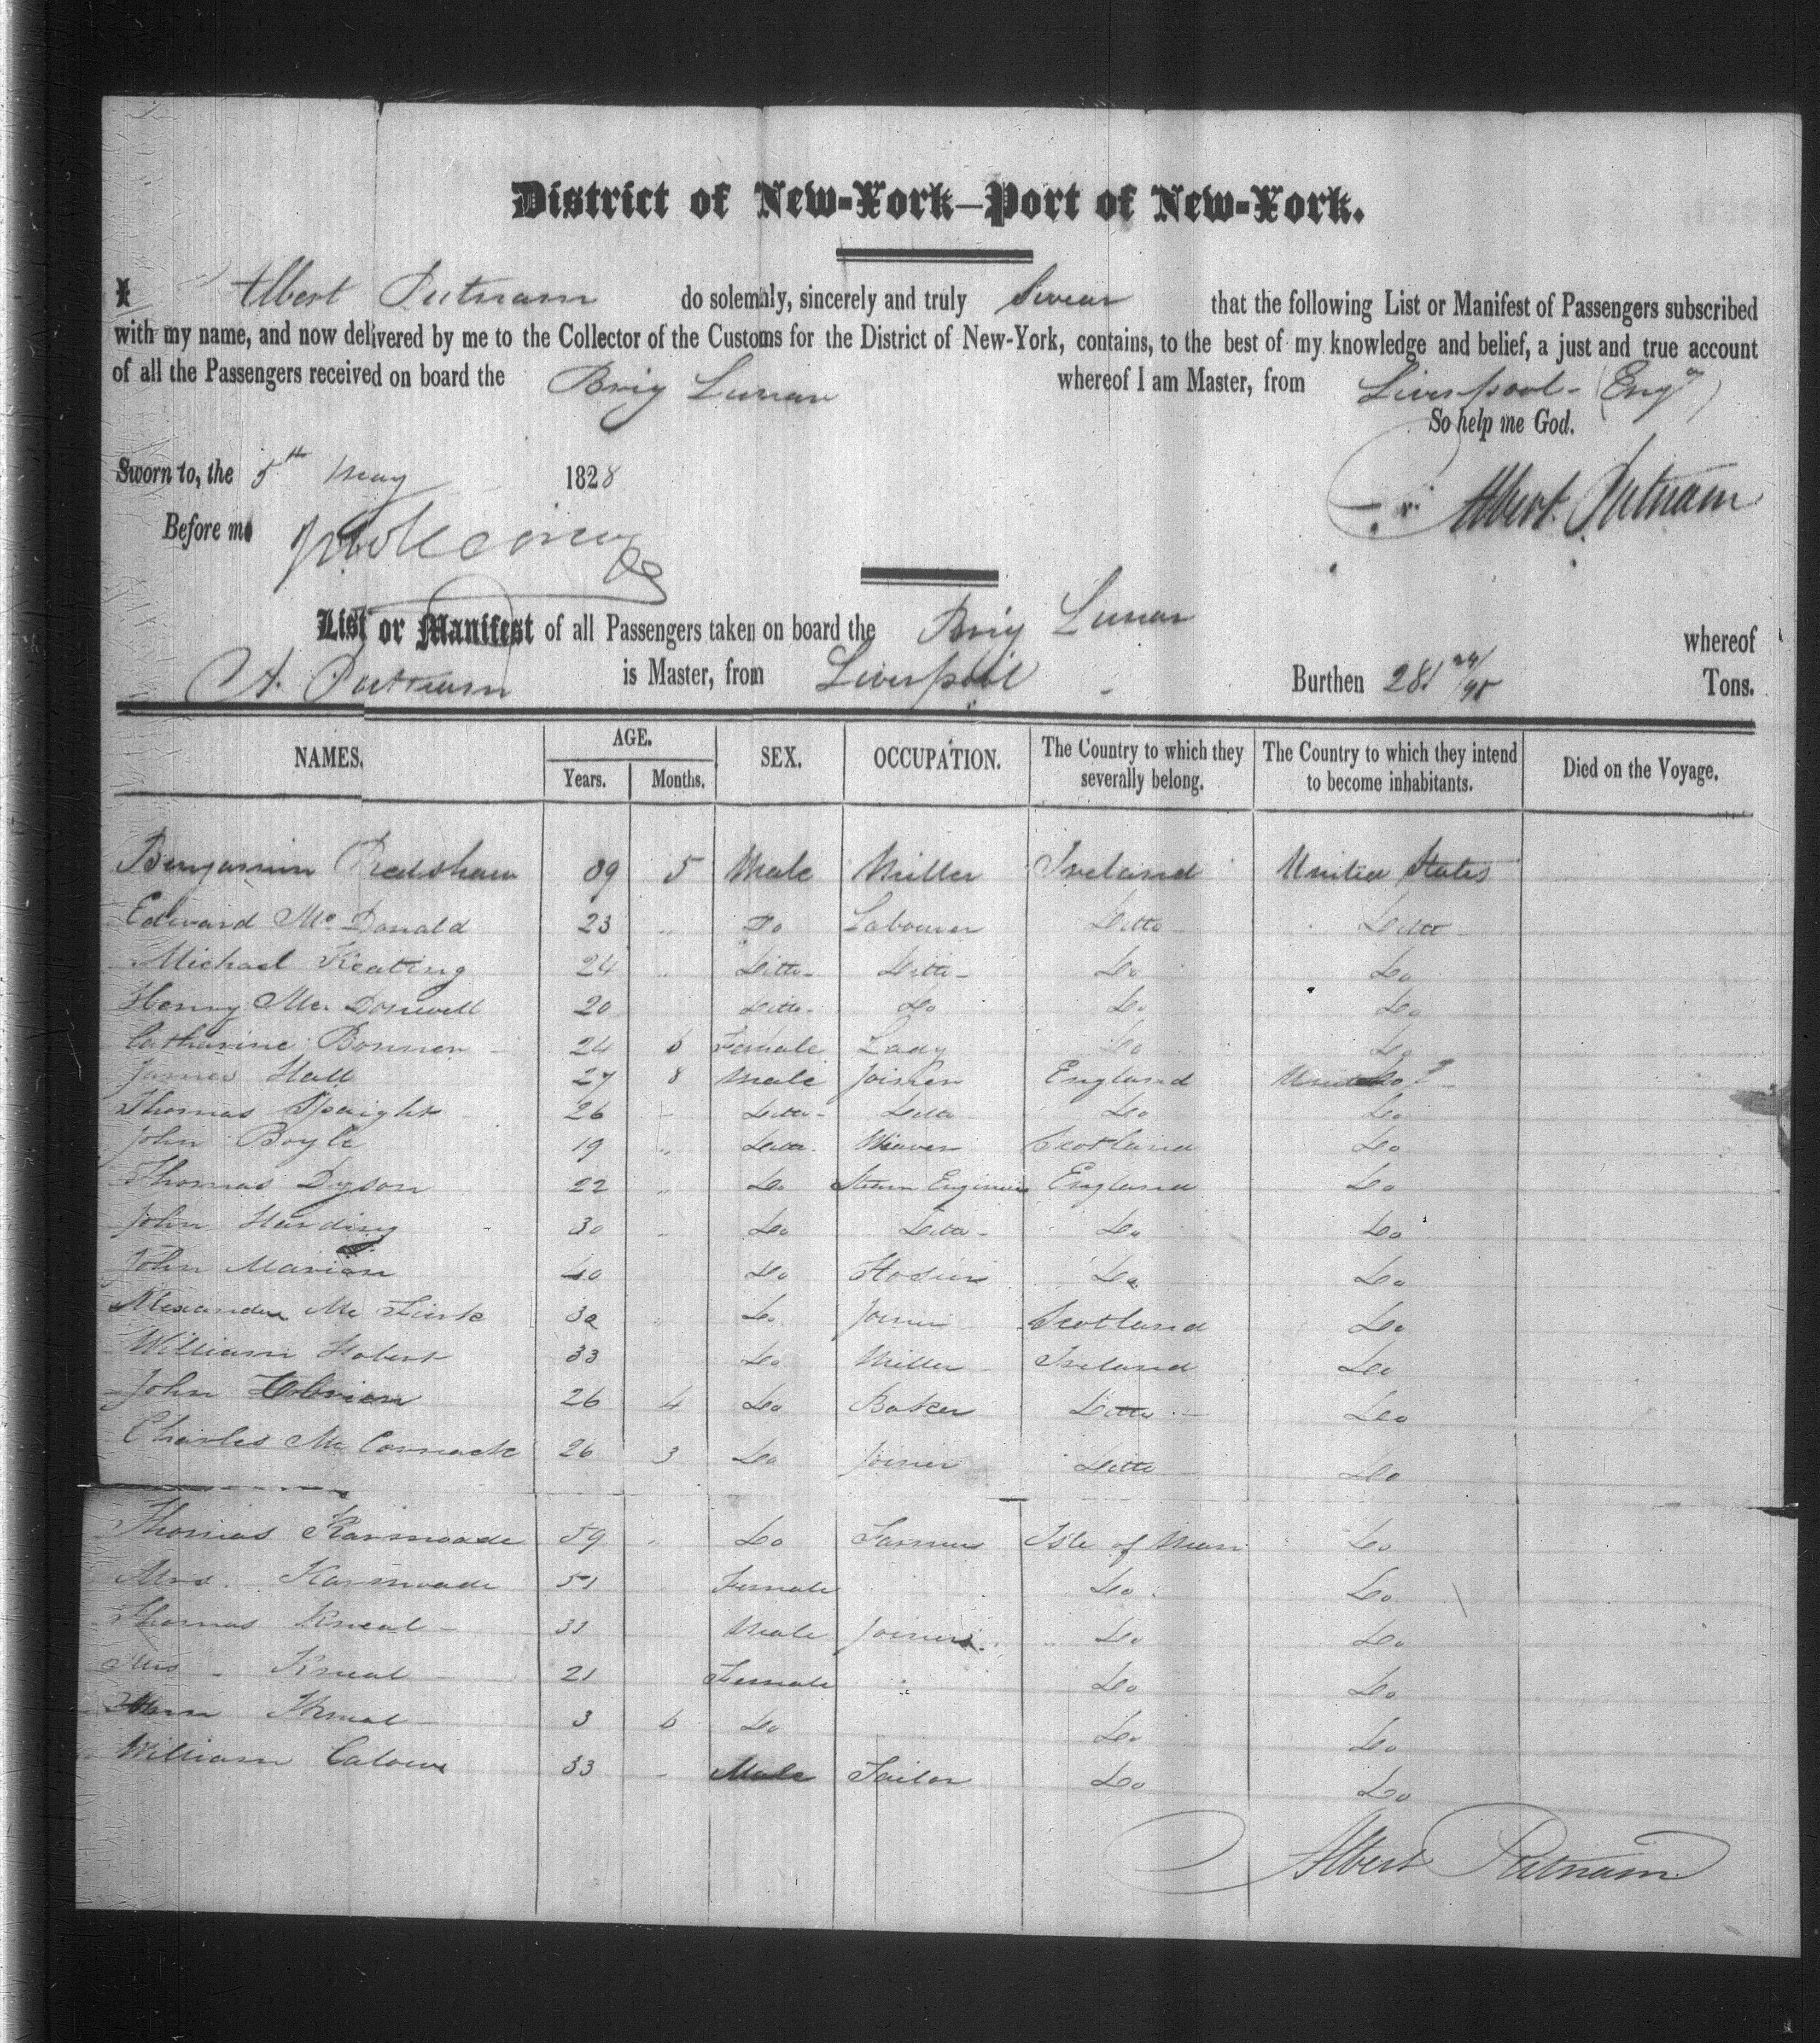 District of New-York—Port of New-York.
I Albert Putnam do solemnly, sincerely and truly Swear that the following List or Manifest of Passengers subscribed
with my name, and now delivered by me to the Collector of the Customs for the District of New-York, contains, to the best of my knowledge and belief, a just and true account
of all the Passengers received on board the Brig Lunar whereof I am Master, from Liverpool - (Eng)
So help me God.
Sworn to, the 5th May 1828
Albert Putnam
Before me
List or Manifest of all Passengers taken on board the Brig Lunar whereof
A. Putnam is Master, from Liverpool - Burthen 281 24/95 Tons.
NAMES. AGE. SEX. OCCUPATION. The Country to which they severally belong. The Country to which they intend to become inhabitants. Died on the Voyage.
Years. Months.
Benjamin Bradshaw 39 5 Male Miller Ireland United States
Edward Mc Donald 23 " Do Labourer Ditto Ditto
Michael Keating 24 " Ditto Ditto Do Do
Henry Mc. Donnell 20 Ditto Do Do Do
Catharine Bonner 24 6 Female Lady Do Do
James Hall 27 8 Male Joiner England Do
Thomas Speight 26 - Ditto Ditto Do Do
John Boyle 19 " Ditto Weaver Scotland Do
Thomas Dyson 22 " Do Steam Engineer England Do
John Harding 30 - Do Ditto Do Do
John Marion 40 Do Hosier Do Do
Alexander Mc 32 " Do Joiner Scotland Do
William Hobert 33 Do Miller Ireland Do
John 26 4 Do Baker Ditto Do
Charles Mc Cormack 26 3 Do Joiner Ditto Do
Thomas Karmoade 59 " Do Farmer Isle of Man Do
Mrs. Karmoade 51 Female Do Do
Thomas Kneal 31 Male Joiner Do Do
Mrs - Kneal 21 Female Do Do
Kneal 3 6 Do Do Do
William Calow 33 - Male Tailor Do Do
Albert Putnam